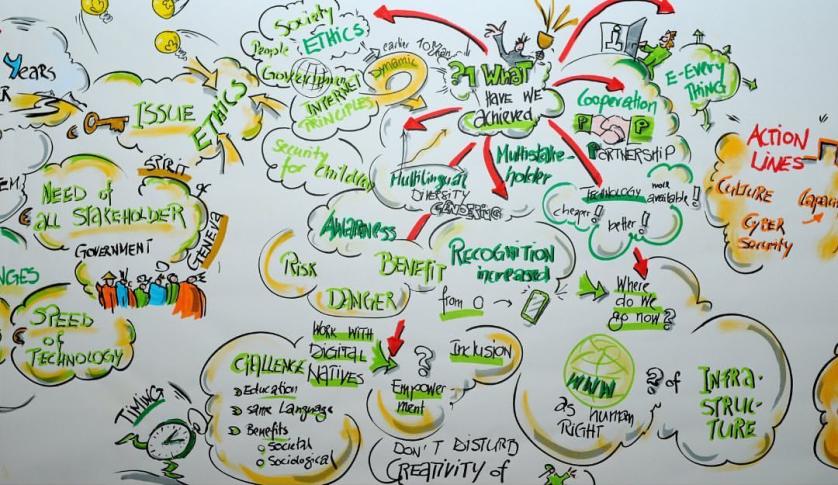 YEARS
R
ISSUE
ETHICS
Society
People
ETHICS
Government
INTERNET
PRINCIPLES
Security
for children
earlier
DYNAMIC
WHAT
HAVE WE
achieved
Cooperation
P
P
PARTNERSHIP
E-EVERY
THING
ACTION
LINES
CULTURE
CYBER
Security
NEED of
all STAKEHOLDER
SPIRIT
of
GENEVA
GOVERNMENT
NGES
SPEED
of
TECHNOLOGY
Multilingual
DIVERSITY
GENDERING
Multistake-
holder
TECHNOLOGY
more
available!
cheaper!
better!
AWARENESS
RISK
BENEFIT
DANGER
RECOGNITION
increased
from 0
Where
do we
go now?
TIMING
CHALLENGE
Education
same Language
Benefits
Societal
Sociological
WORK WITH
DIGITAL
NATIVES
?
Inclusion
Empower
ment
DON'T DISTURB
CREATIVITY of
WWW
as human
RIGHT
? of
INFRA-
STRUC-
TURE